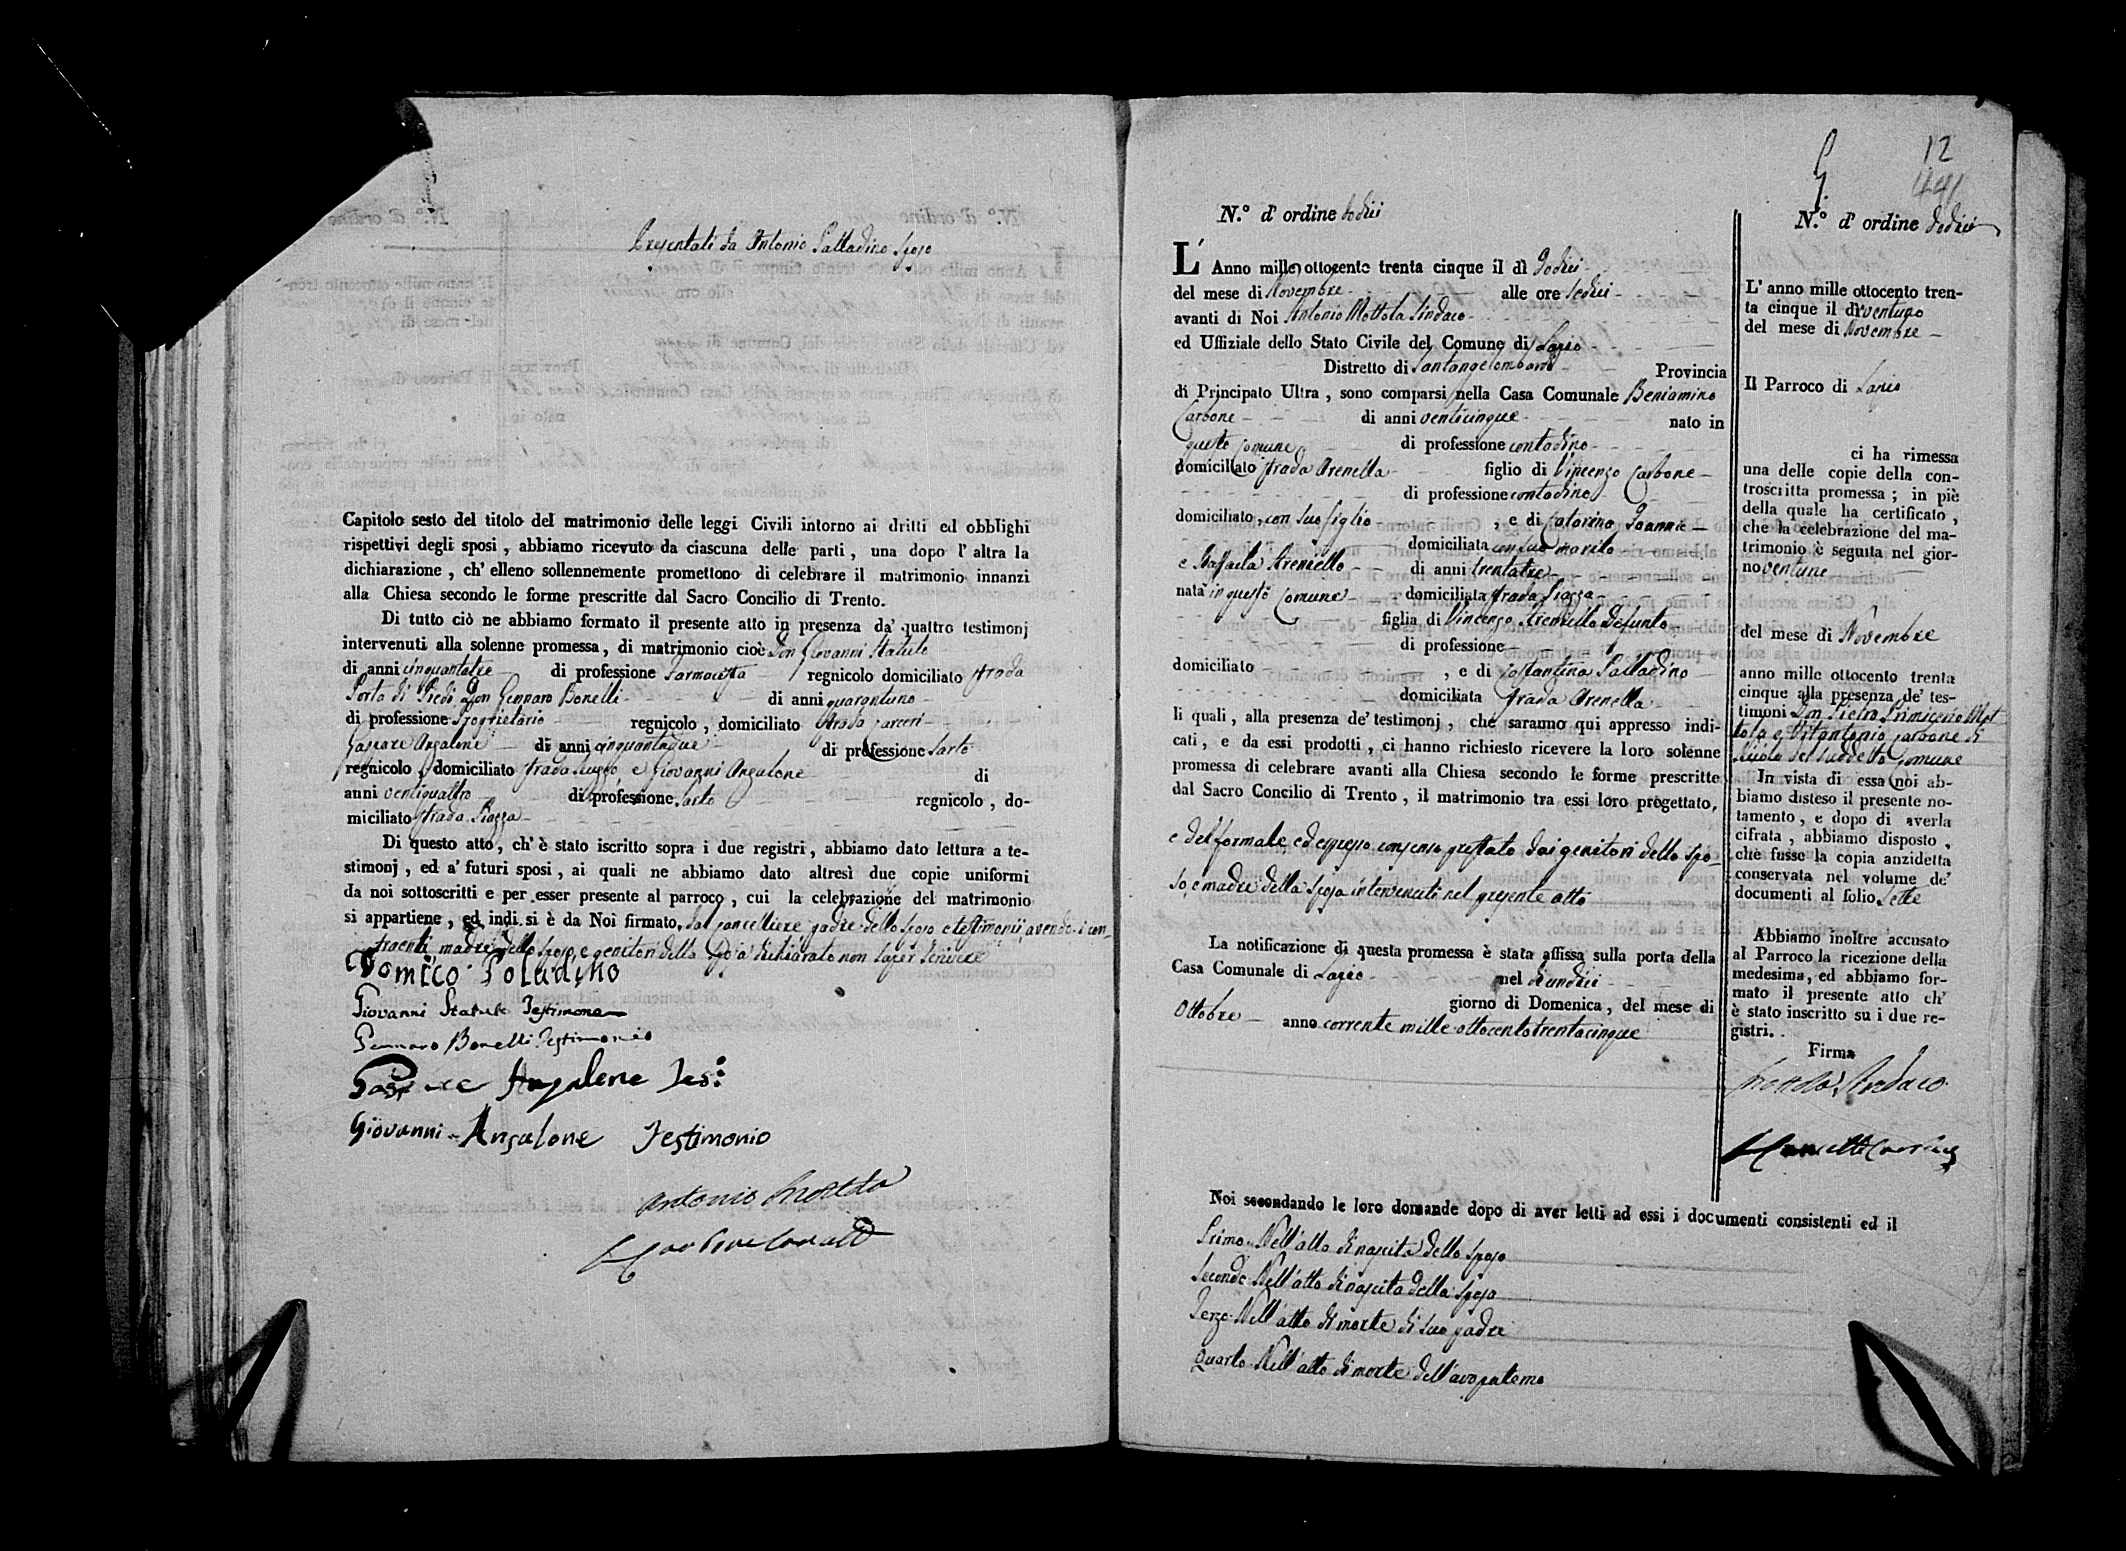 Presentati da Antonio Palladino sposo
Capitolo sesto del titolo del matrimonio delle leggi Civili intorno ai dritti ed obblighi
rispettivi degli sposi, abbiamo ricevuto da ciascuna delle parti, una dopo l' altra la
dichiarazione, ch' elleno sollennemente promettono di celebrare il matrimonio innanzi
alla Chiesa secondo le forme prescritte dal Sacro Concilio di Trento.
Di tutto ciò ne abbiamo formato il presente atto in presenza da' quattro testimonj
intervenuti alla solenne promessa, di matrimonio cioè Don Giovanni Statuto
di anni cinquantatre di professione Farmacista regnicolo domiciliato strada
Porta di Piedi, Don Gennaro Bonelli di anni quarantuno
di professione Proprietario regnicolo, domiciliato strada Carceri
Gaspare Angalone di anni cinquantadue di professione Sarto
regnicolo, domiciliato strada e Giovanni Angalone di
anni ventiquattro di professione Sarto regnicolo, do-
miciliato strada Piazza
Di questo atto, ch' è stato iscritto sopra i due registri, abbiamo dato lettura a te-
stimonj, ed a' futuri sposi, ai quali ne abbiamo dato altresì due copie uniformi
da noi sottoscritti e per esser presente al parroco, cui la celebrazione del matrimonio
si appartiene, ed indi si è da Noi firmato, dal cancelliere padre dello sposo e testimonii, avendo i con-
traenti, madre dello sposo, e genitori della sposa dichiarato non saper scrivere
Domico Poladino
Giovanni Statuto Testimone
Gennaro Bonelli Testimonio
Gaspare Angalone Tes:
Giovanni Angalone Testimonio
Antonio Mottola
12
441
N.º d' ordine dodici
L' Anno mille ottocento trenta cinque il dì Dodici
del mese di Novembre alle ore sedici
avanti di Noi Antonio Mottola Sindaco
ed Uffiziale dello Stato Civile del Comune di Lapio
Distretto di Santangelombardi Provincia
di Principato Ultra, sono comparsi nella Casa Comunale Beniamino
Carbone di anni venticinque nato in
questo Comune di professione contadino
domiciliato strada Arenella figlio di Vincenzo Carbone
di professione contadino
domiciliato, con suo figlio, e di Catarina Ioannie
domiciliata con suo marito
e Raffaela Areniello di anni trentatre
nata in questo Comune domiciliata strada Piazza
figlia di Vincenzo Areniello Defunto
di professione
domiciliato, e di Costantina Palladino
domiciliata strada Arenella
li quali, alla presenza de' testimonj, che saranno qui appresso indi-
cati, e da essi prodotti, ci hanno richiesto ricevere la loro solenne
promessa di celebrare avanti alla Chiesa secondo le forme prescritte
dal Sacro Concilio di Trento, il matrimonio tra essi loro progettato,
e del formale, ed espresso consenso prestato dai genitori dello spo-
so, e madre della sposa intervenuti nel presente atto
La notificazione di questa promessa è stata affissa sulla porta della
Casa Comunale di Lapio nel dì undici
giorno di Domenica, del mese di
Ottobre anno corrente mille ottocento trentacinque
Noi secondando le loro domande dopo di aver letti ad essi i documenti consistenti ed il
Primo. Nell'atto di nascita dello sposo
Secondo Nell'atto di nascita della sposa
Terzo. Nell'atto di morte di suo padre
Quarto. Nell'atto di morte dell'avo paterno
N.º d' ordine dodici
L' anno mille ottocento tren-
ta cinque il dì ventuno
del mese di Novembre
Il Parroco di Lapio
ci ha rimessa
una delle copie della con-
troscritta promessa; in piè
della quale ha certificato,
che la celebrazione del ma-
trimonio è seguita nel gior-
no ventuno
del mese di Novembre
anno mille ottocento trenta
cinque alla presenza de' tes-
timoni Don Pietro Primicerio Mot-
tola e Vitantonio Carbone di
Nicola del suddetto Comune
In vista di essa noi ab-
biamo disteso il presente no-
tamento, e dopo di averla
cifrata, abbiamo disposto,
che fusse la copia anzidetta
conservata nel volume de'
documenti al folio Sette
Abbiamo inoltre accusato
al Parroco la ricezione della
medesima, ed abbiamo for-
mato il presente atto ch'
è stato inscritto su i due re-
gistri.
Firma
Mottola Sindaco